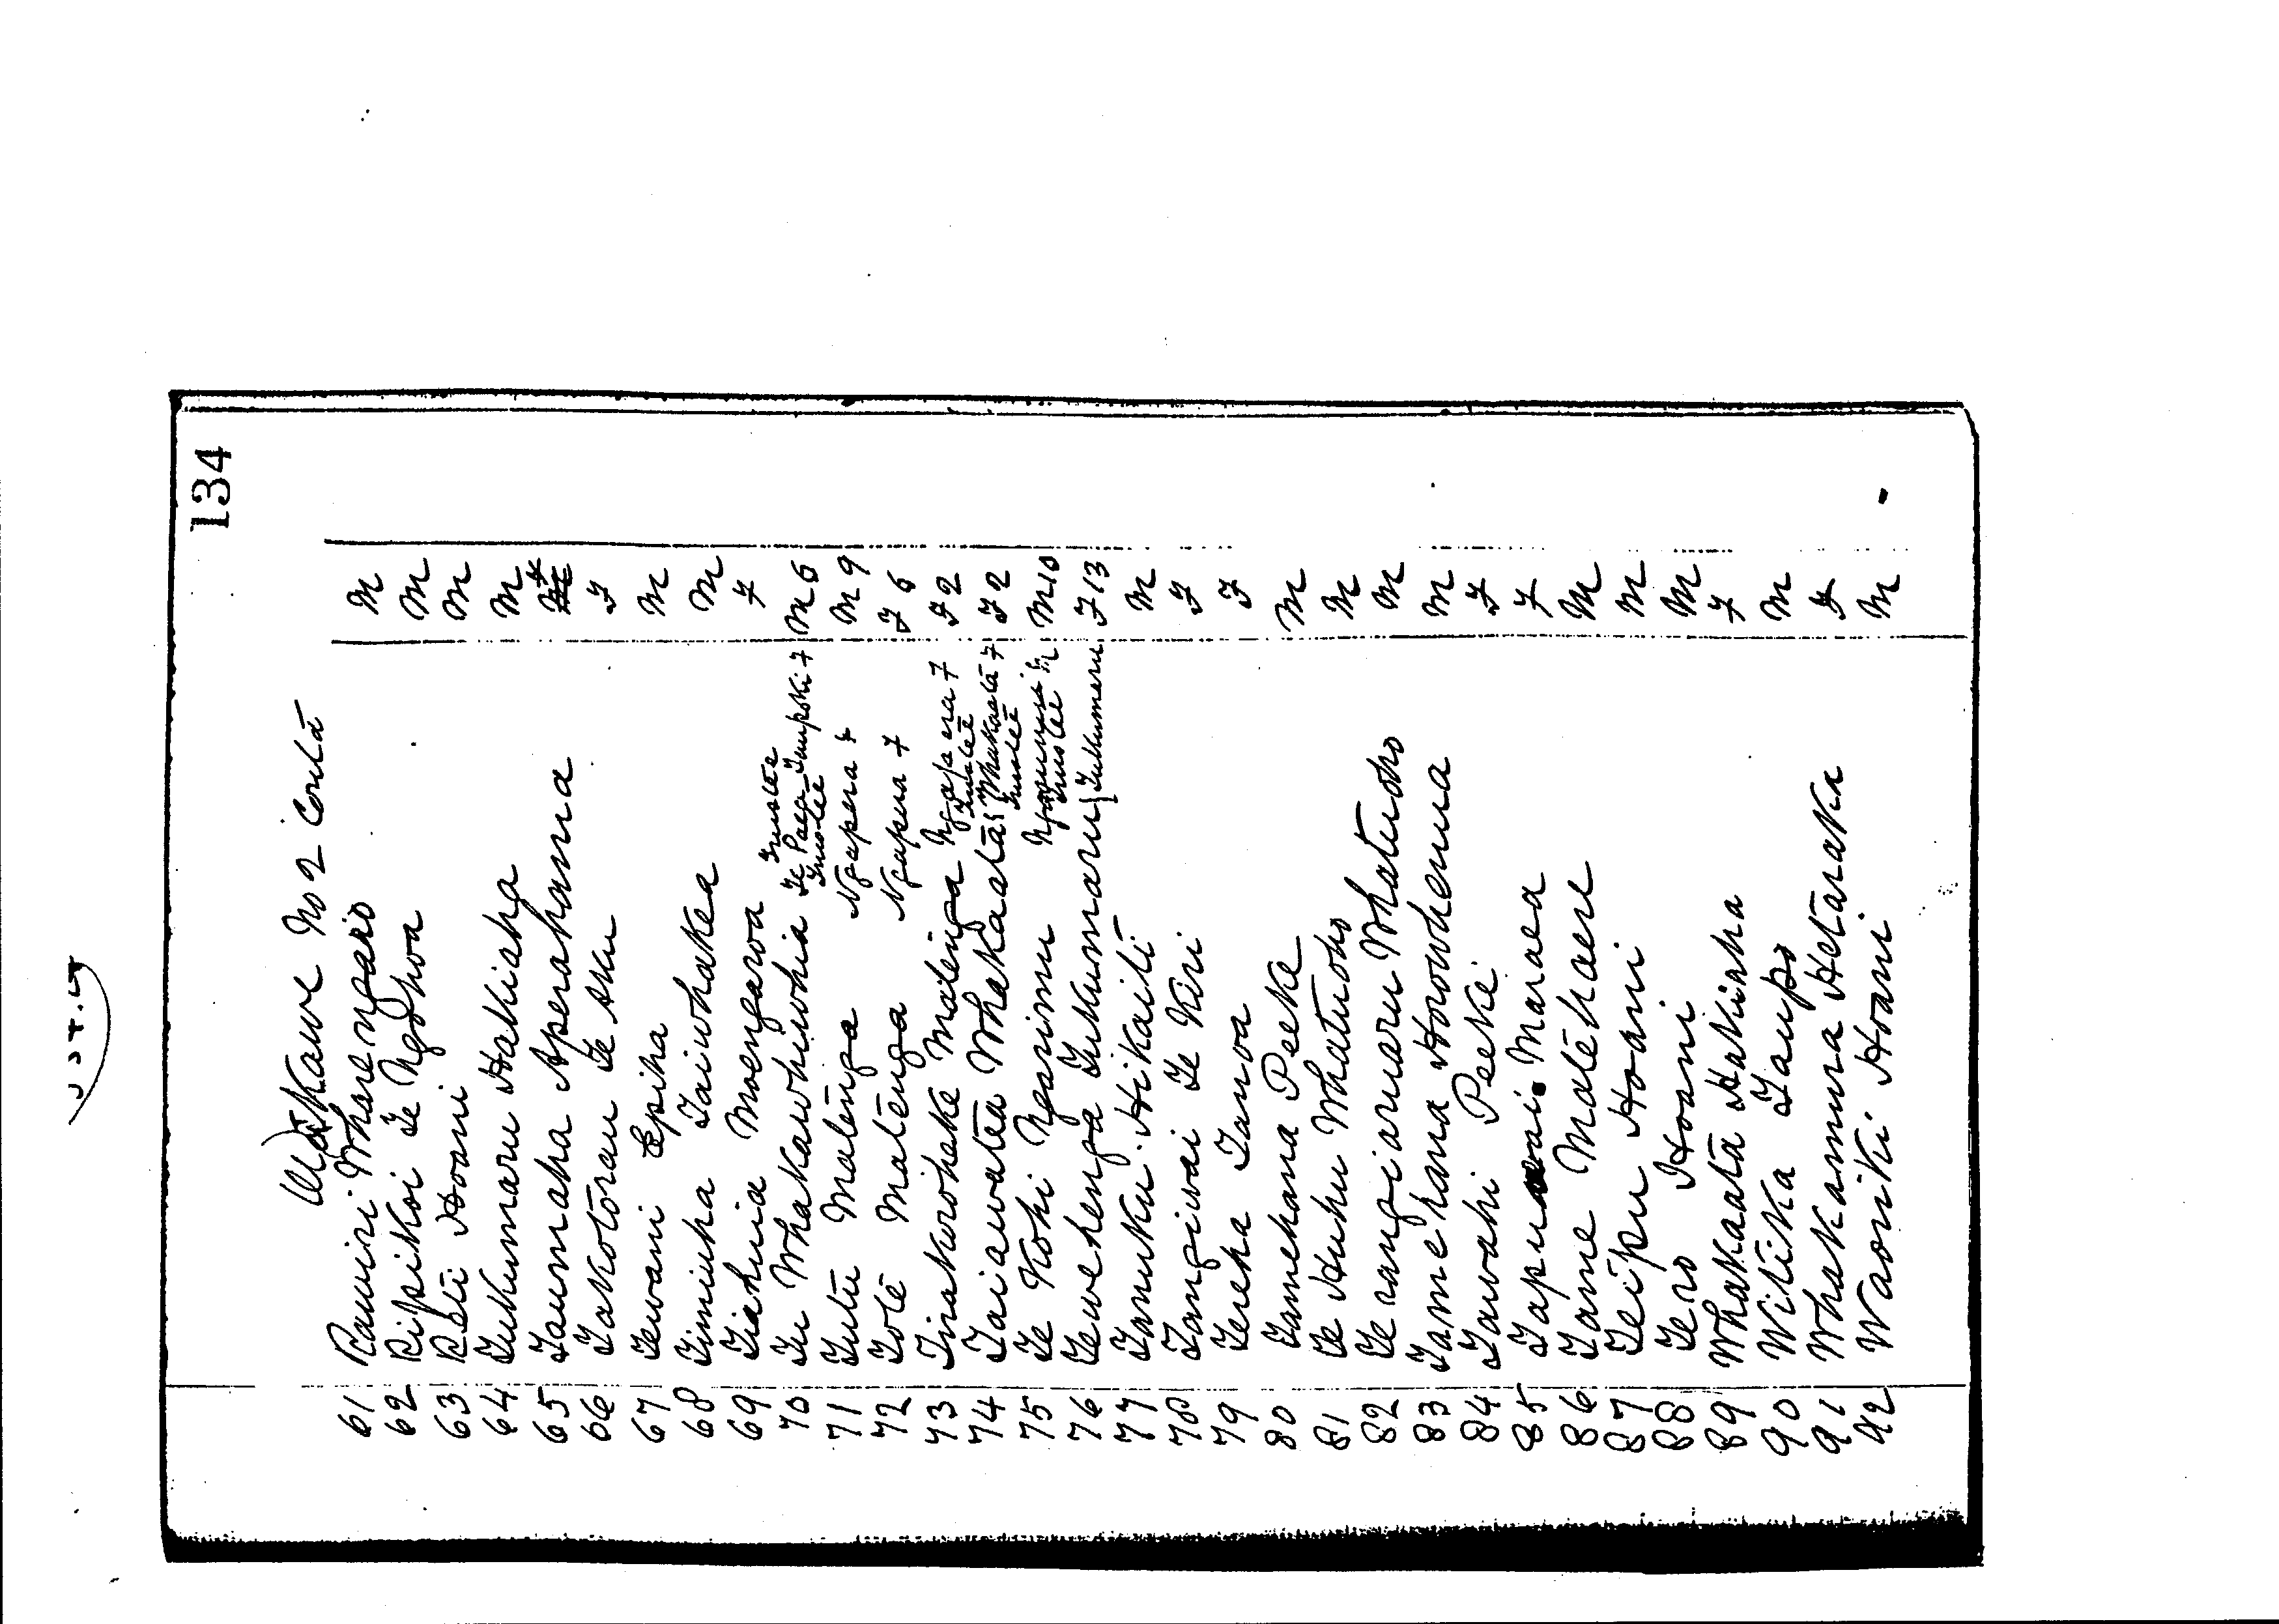 134
Waikawe No 2 Contd
61 Rawiri Wharengaio M
62 Ripikoi Te Ngohoa M
63 Reti Hoani M
64 Tukumaru Hakiaha M
65 Taumaha Aperahama F
66 Takotorau Te Aku F
67 Tewani Epiha M
68 Timiuha Taiwhakea M
69 Tiahuia Moengaroa F
70 Tu Whakawhiuwhia Trustee Te Paea Taupoki F Trustee M 6
71 Tutu Matenga Ngapera F M 9
72 Tote Matenga Ngapera F F 6
73 Tirakuroheke Matenga Ngapera F Trustee F 2
74 Taiawatea Whakaata Whakaata F Trustee F 2
75 Te Kohi Ngarimu Ngarimu M Trustee M 10
76 Tewehenga Tukumaru Tukumaru F 13
77 Tanuku Hikaiti M
78 Tangiwai Te Kiri F
79 Tereha Taroa F
80 Tamehana Peeke M
81 Te Huhu Whatuoho M
82 Te rangiaruaru Whatuoho M
83 Tamehana Horowhenua M
84 Tawahi Peeke F
85 Maraea F
86 Tame Matehaere M
87 Teipu Hoani M
88 Tero Hoani M
89 Whakaata Hakiaha F
90 Witika Taupo M
91 Whakamura Hetaraka F
92 Waoriki Hoani M